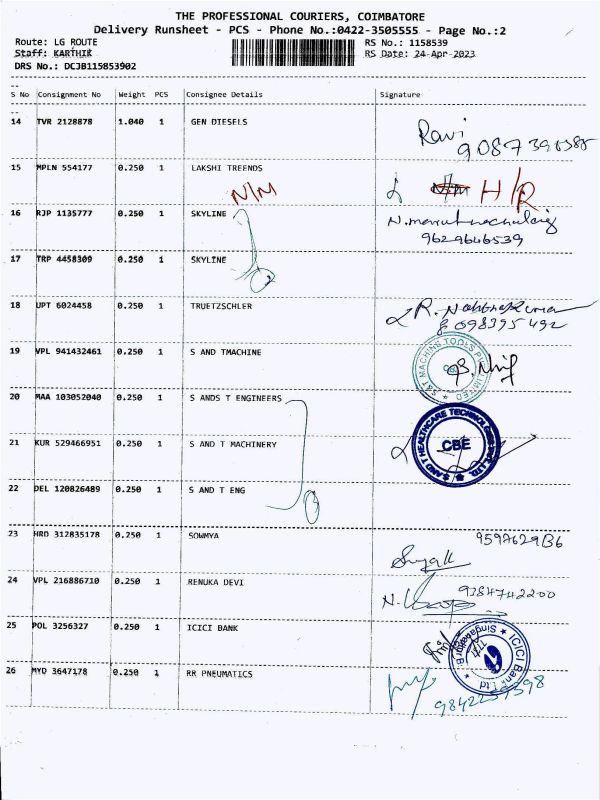 THE PROFESSIONAL COURIERS, COIMBATORE
Delivery Runsheet - PCS - Phone No.:0422-3505555 - Page No.:2
Route: LG ROUTE RS No.: 1158539
Staff: KARTHIK RS Date: 24-Apr-2023
DRS No.: DCJB115853902
S No Consignment No Weight PCS Consignee Details Signature
14 TVR 2128878 1.040 1 GEN DIESELS
Ravi
15 MPLN 554177 0.250 1 LAKSHI TREENDS
N/M H/R
16 RJP 1135777 0.250 1 SKYLINE
9629646539
17 TRP 4458309 0.250 1 SKYLINE
18 UPT 6024458 0.250 1 TRUETZSCHLER
19 VPL 941432461 0.250 1 S AND TMACHINE
S&T MACHINE TOOLS PVT LIMITED
20 MAA 103052040 0.250 1 S ANDS T ENGINEERS
21 KUR 529466951 0.250 1 S AND T MACHINERY
S AND T HEALTHCARE TECHNOLOGIES PVT. LTD.
CBE
22 DEL 120826489 0.250 1 S AND T ENG
23 HRD 312835178 0.250 1 SOWMYA
24 VPL 216886710 0.250 1 RENUKA DEVI
9384742200
25 POL 3256327 0.250 1 ICICI BANK
ICICI Bank Ltd
26 MYD 3647178 0.250 1 RR PNEUMATICS